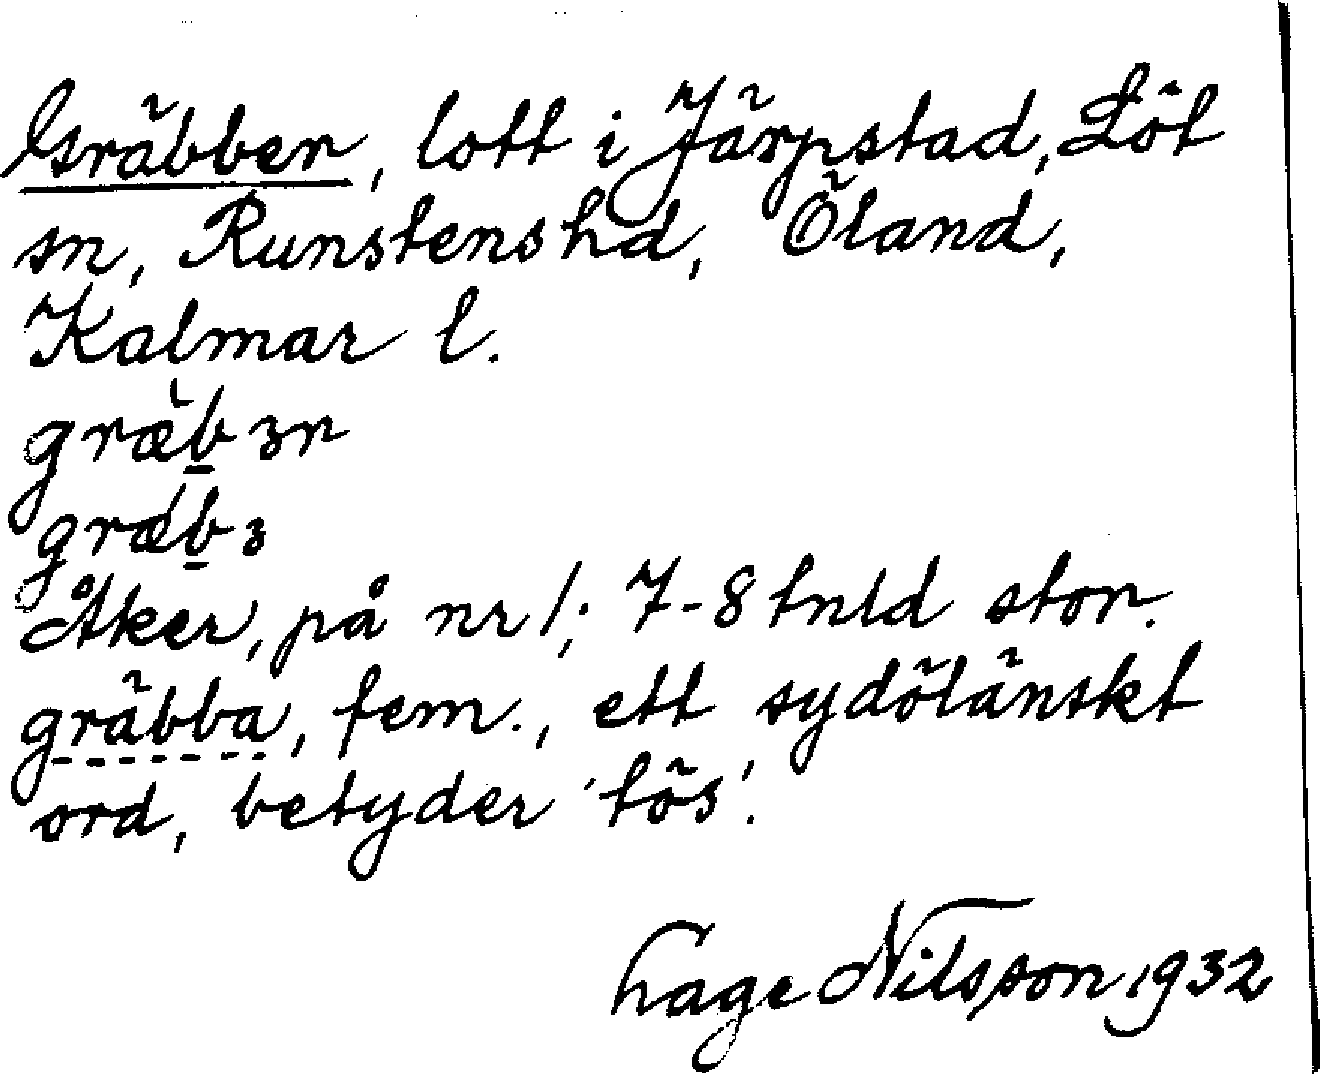 Gräbber, lott i Järpstad, Löt
sn, Runstens hd, Öland,
Kalmar l.
græ̀b̲ɜr
græ´b̲ɜ
Åker, på nr 1; 7-8 tnld stor.
gräbba, fem., ett sydöländskt
ord, betyder 'tös'.
Hage Nilsson 1932